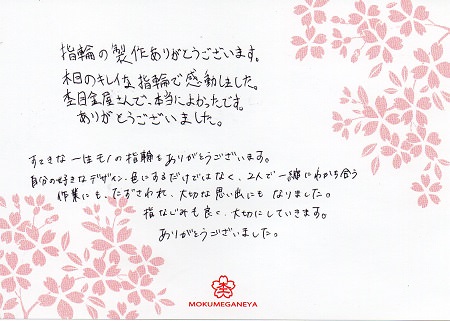 指輪の製作ありがとうございます。
木目のキレイな指輪で感動しました。
杢目金屋さんで、本当によかったです。
ありがとうございました。
すてきな一生モノの指輪をありがとうございます。
自分の好きなデザイン、色にするだけではなく、2人で一緒にわかち合う
作業にも、たずさわれ、大切な思い出にもなりました。
指なじみも良く、大切にしていきます。
ありがとうございました。
MOKUMEGANEYA